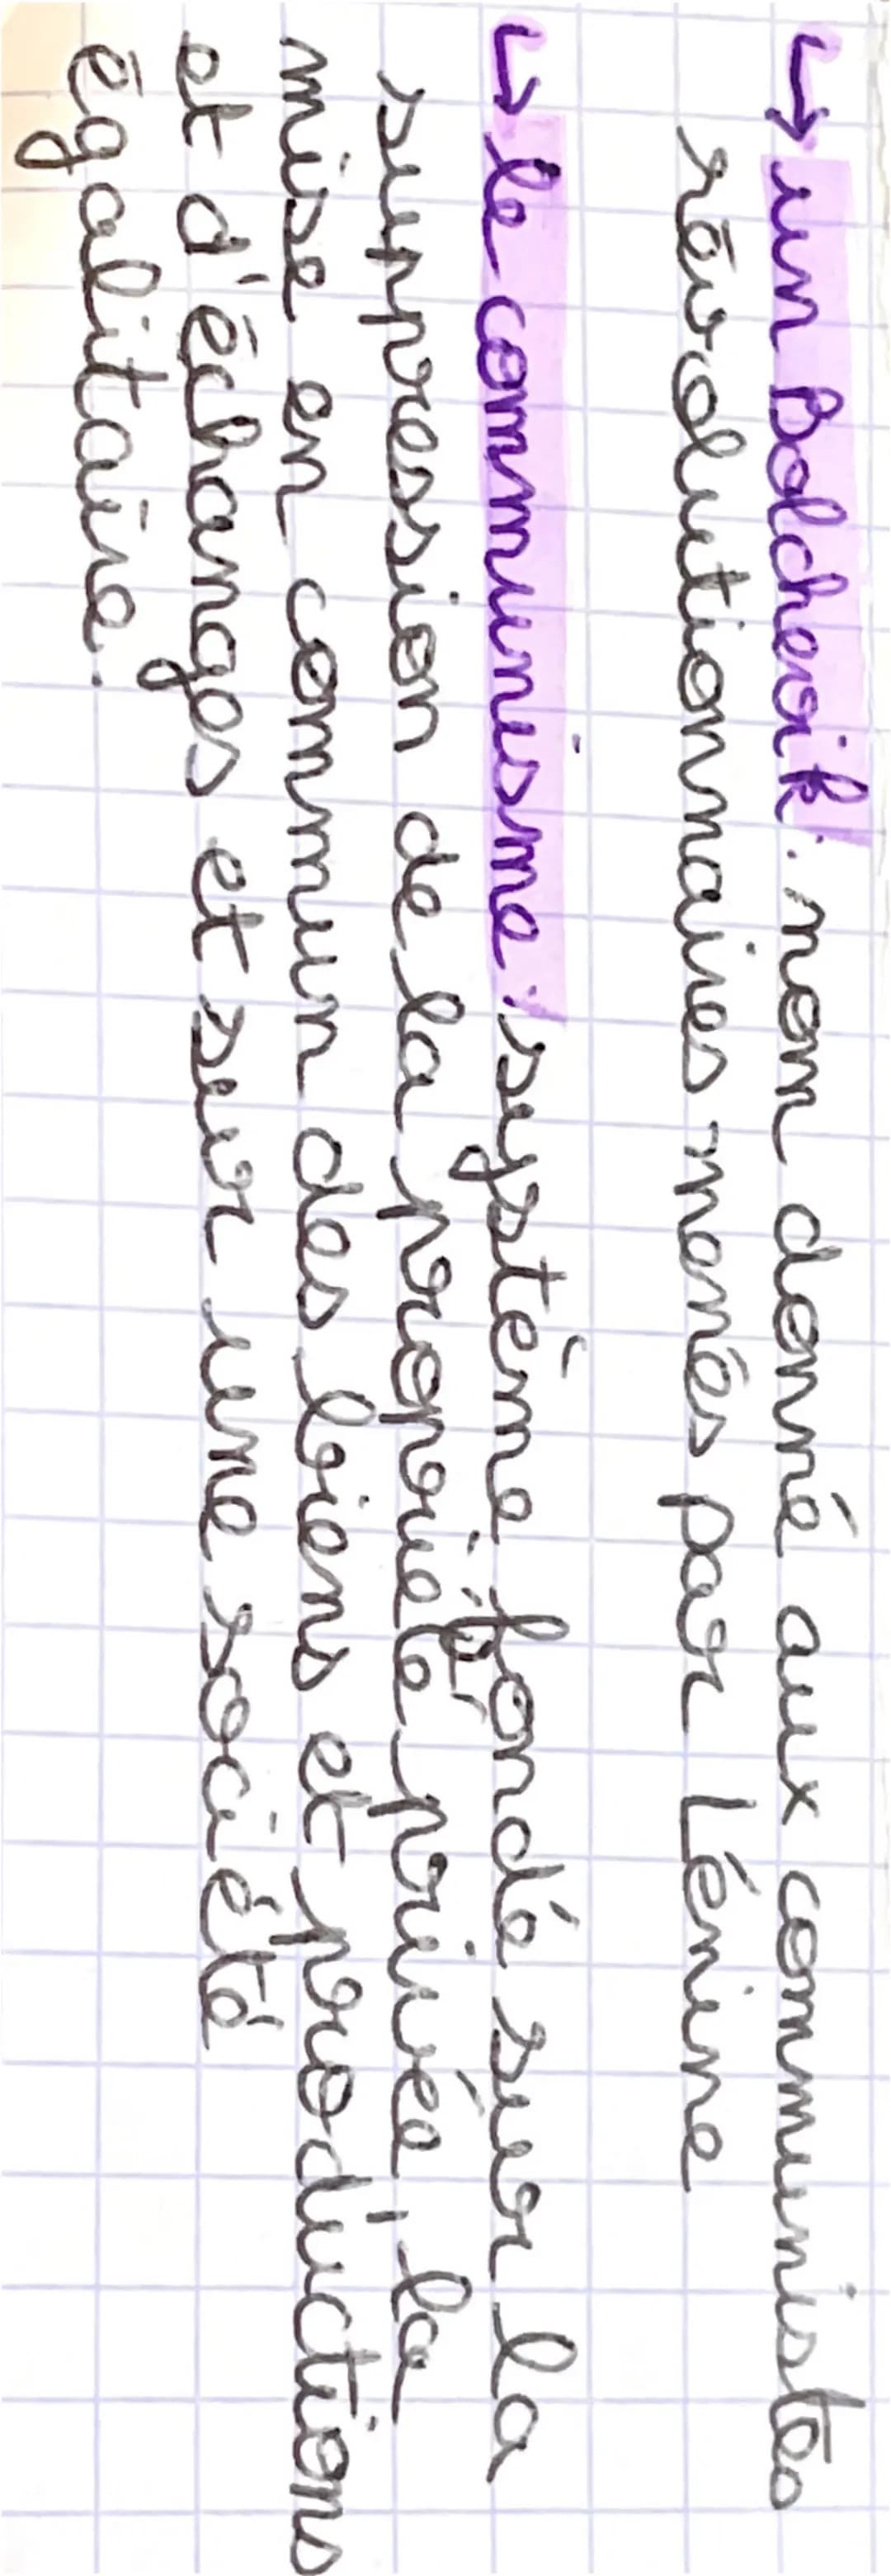 ↳ un Bolchevik : nom donné aux communistes
révolutionnaires menés par Lénine
↳ le communisme : système fondé sur la
suppression de la propriété privée, la
mise en commun des biens et productions
et d'échanges et sur une société
égalitaire.